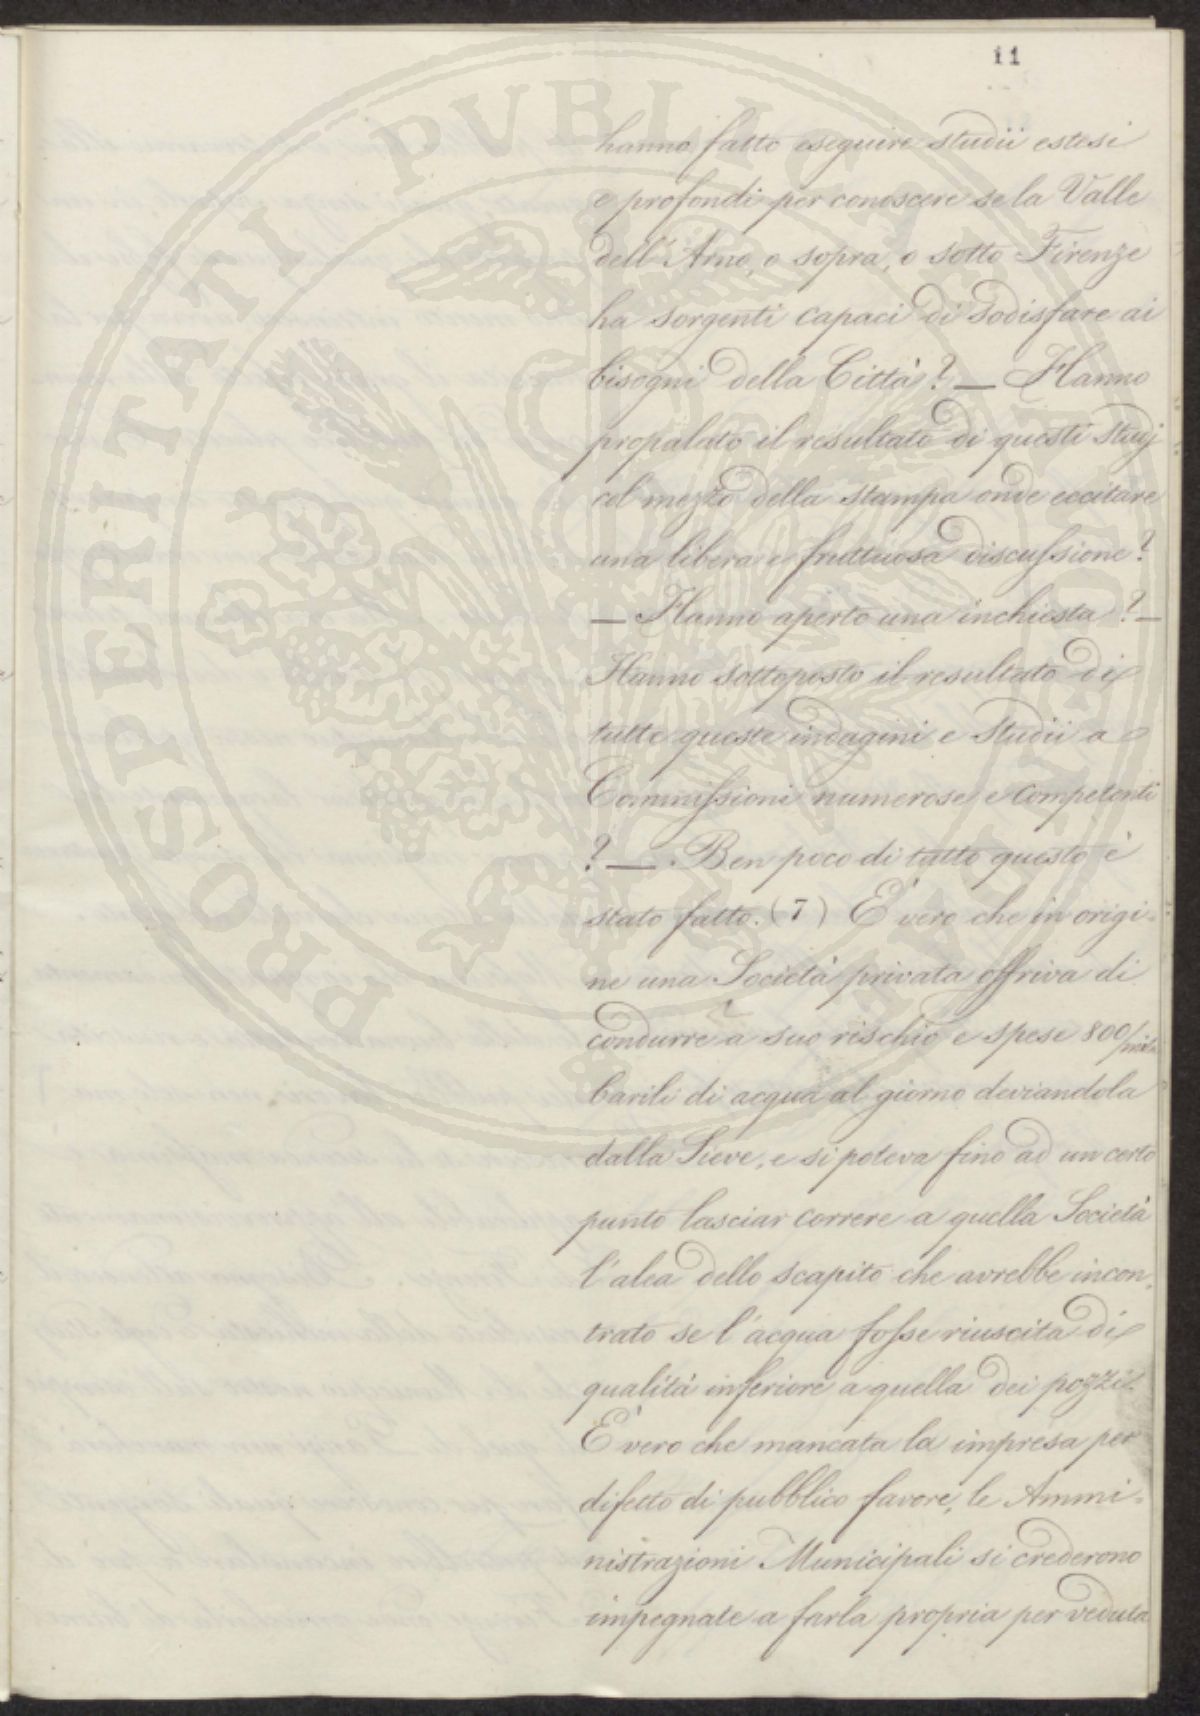 11
hanno fatto eseguire studii estesi
e profondi per conoscere se la Valle
dell'Arno, o sopra, o sotto Firenze
ha sorgenti capaci di sodisfare ai
bisogni della Città? — Hanno
propalato il resultato di questi studj
col mezzo della stampa onde eccitare
una libera e fruttuosa discussione?
— Hanno aperto una inchiesta? —
Hanno sottoposto il resultato di
tutte queste indagini e studii a
Commissioni numerose e competenti
? — Ben poco di tutto questo è
stato fatto. (7) È vero che in origi-
ne una Società privata offriva di
condurre a suo rischio e spese 800/mila
barili di acqua al giorno deviandola
dalla Sieve, e si poteva fino ad un certo
punto lasciar correre a quella Società
l'alea dello scapito che avrebbe incon-
trato se l'acqua fosse riuscita di
qualità inferiore a quella dei pozzi.
È vero che mancata la impresa per
difetto di pubblico favore, le Ammi-
nistrazioni Municipali si crederono
impegnate a farla propria per veduta
PROSPERITATI PVBLICAE AVGENDAE